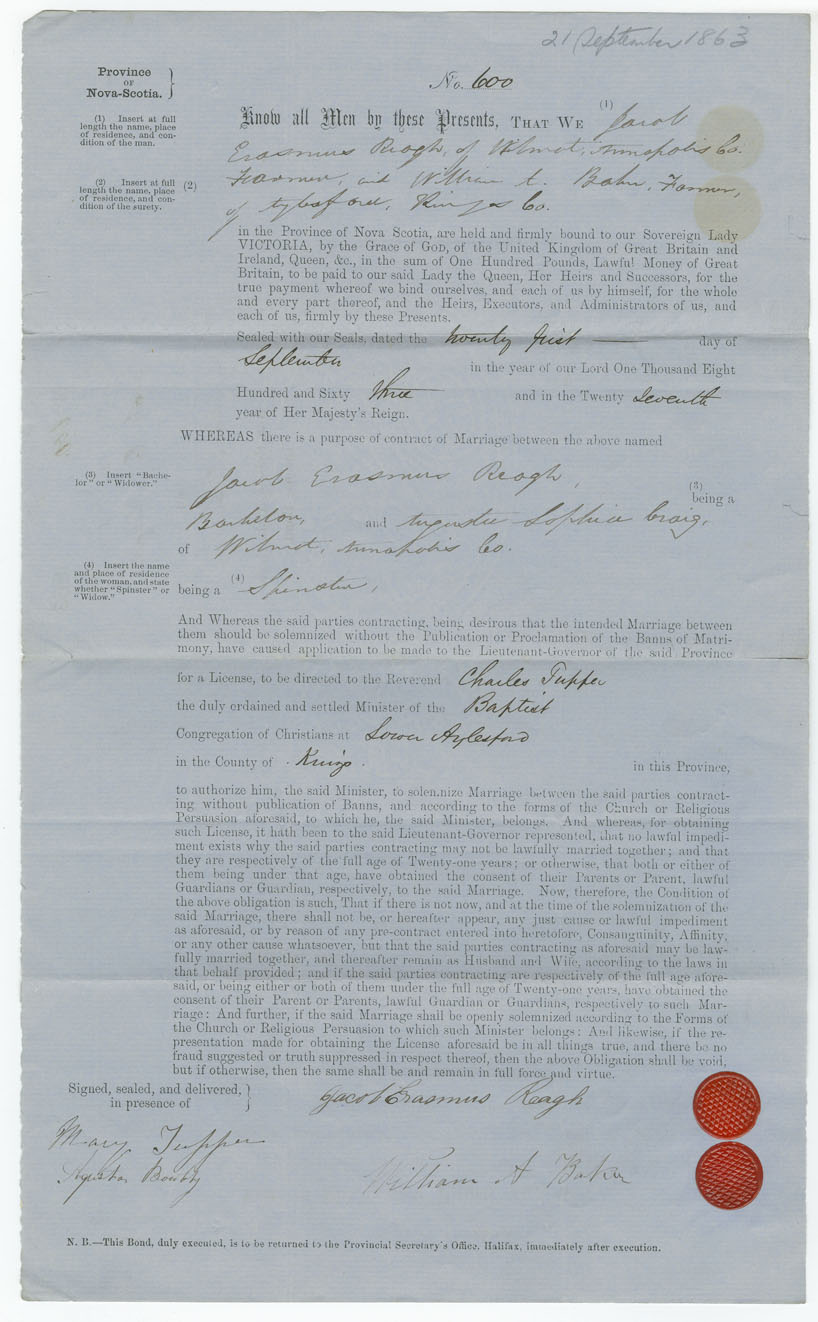 21 September 1863
Province
OF
Nova-Scotia.
No. 600
(1) Insert at full
length the name, place
of residence, and con-
dition of the man.
Know all Men by these Presents, THAT WE (1) Jacob
Erasmus Reagh, of Wilmot, Annapolis Co.
(2) Insert at full
length the name, place
of residence, and con-
dition of the surety.
(2) Farmer, and William A. Baker, Farmer,
of Aylesford, Kings Co.
in the Province of Nova Scotia, are held and firmly bound to our Sovereign Lady
VICTORIA, by the Grace of GOD, of the United Kingdom of Great Britain and
Ireland, Queen, &c., in the sum of One Hundred Pounds, Lawful Money of Great
Britain, to be paid to our said Lady the Queen, Her Heirs and Successors, for the
true payment whereof we bind ourselves, and each of us by himself, for the whole
and every part thereof, and the Heirs, Executors, and Administrators of us, and
each of us, firmly by these Presents.
Sealed with our Seals, dated the twenty first day of
September in the year of our Lord One Thousand Eight
Hundred and Sixty three and in the Twenty Seventh
year of Her Majesty's Reign.
WHEREAS there is a purpose of contract of Marriage between the above named
(3) Insert "Bache-
lor" or "Widower."
Jacob Erasmus Reagh, (3) being a
Bachelor, and Augusta Sophia Craig,
of Wilmot, Annapolis Co.
(4) Insert the name
and place of residence
of the woman, and state
whether "Spinster" or
"Widow."
being a (4) Spinster,
And Whereas the said parties contracting, being desirous that the intended Marriage between
them should be solemnized without the Publication or Proclamation of the Banns of Matri-
mony, have caused application to be made to the Lieutenant-Governor of the said Province
for a License, to be directed to the Reverend Charles Tupper
the duly ordained and settled Minister of the Baptist
Congregation of Christians at Lower Aylesford
in the County of Kings in this Province,
to authorize him, the said Minister, to solemnize Marriage between the said parties contract-
ing without publication of Banns, and according to the forms of the Church or Religious
Persuasion aforesaid, to which he, the said Minister, belongs. And whereas, for obtaining
such License, it hath been to the said Lieutenant-Governor represented, that no lawful impedi-
ment exists why the said parties contracting may not be lawfully married together; and that
they are respectively of the full age of Twenty-one years; or otherwise, that both or either of
them being under that age, have obtained the consent of their Parents or Parent, lawful
Guardians or Guardian, respectively, to the said Marriage. Now, therefore, the Condition of
the above obligation is such, That if there is not now, and at the time of the solemnization of the
said Marriage, there shall not be, or hereafter appear, any just cause or lawful impediment
as aforesaid, or by reason of any pre-contract entered into heretofore, Consanguinity, Affinity,
or any other cause whatsoever, but that the said parties contracting as aforesaid may be law-
fully married together, and thereafter remain as Husband and Wife, according to the laws in
that behalf provided; and if the said parties contracting are respectively of the full age afore-
said, or being either or both of them under the full age of Twenty-one years, have obtained the
consent of their Parent or Parents, lawful Guardian or Guardians, respectively to such Mar-
riage: And further, if the said Marriage shall be openly solemnized according to the Forms of
the Church or Religious Persuasion to which such Minister belongs: And likewise, if the re-
presentation made for obtaining the License aforesaid be in all things true, and there be no
fraud suggested or truth suppressed in respect thereof, then the above Obligation shall be void,
but if otherwise, then the same shall be and remain in full force and virtue.
Signed, sealed, and delivered,
in presence of
Jacob Erasmus Reagh
Mary Tupper
William A Baker
N. B.—This Bond, duly executed, is to be returned to the Provincial Secretary's Office, Halifax, immediately after execution.